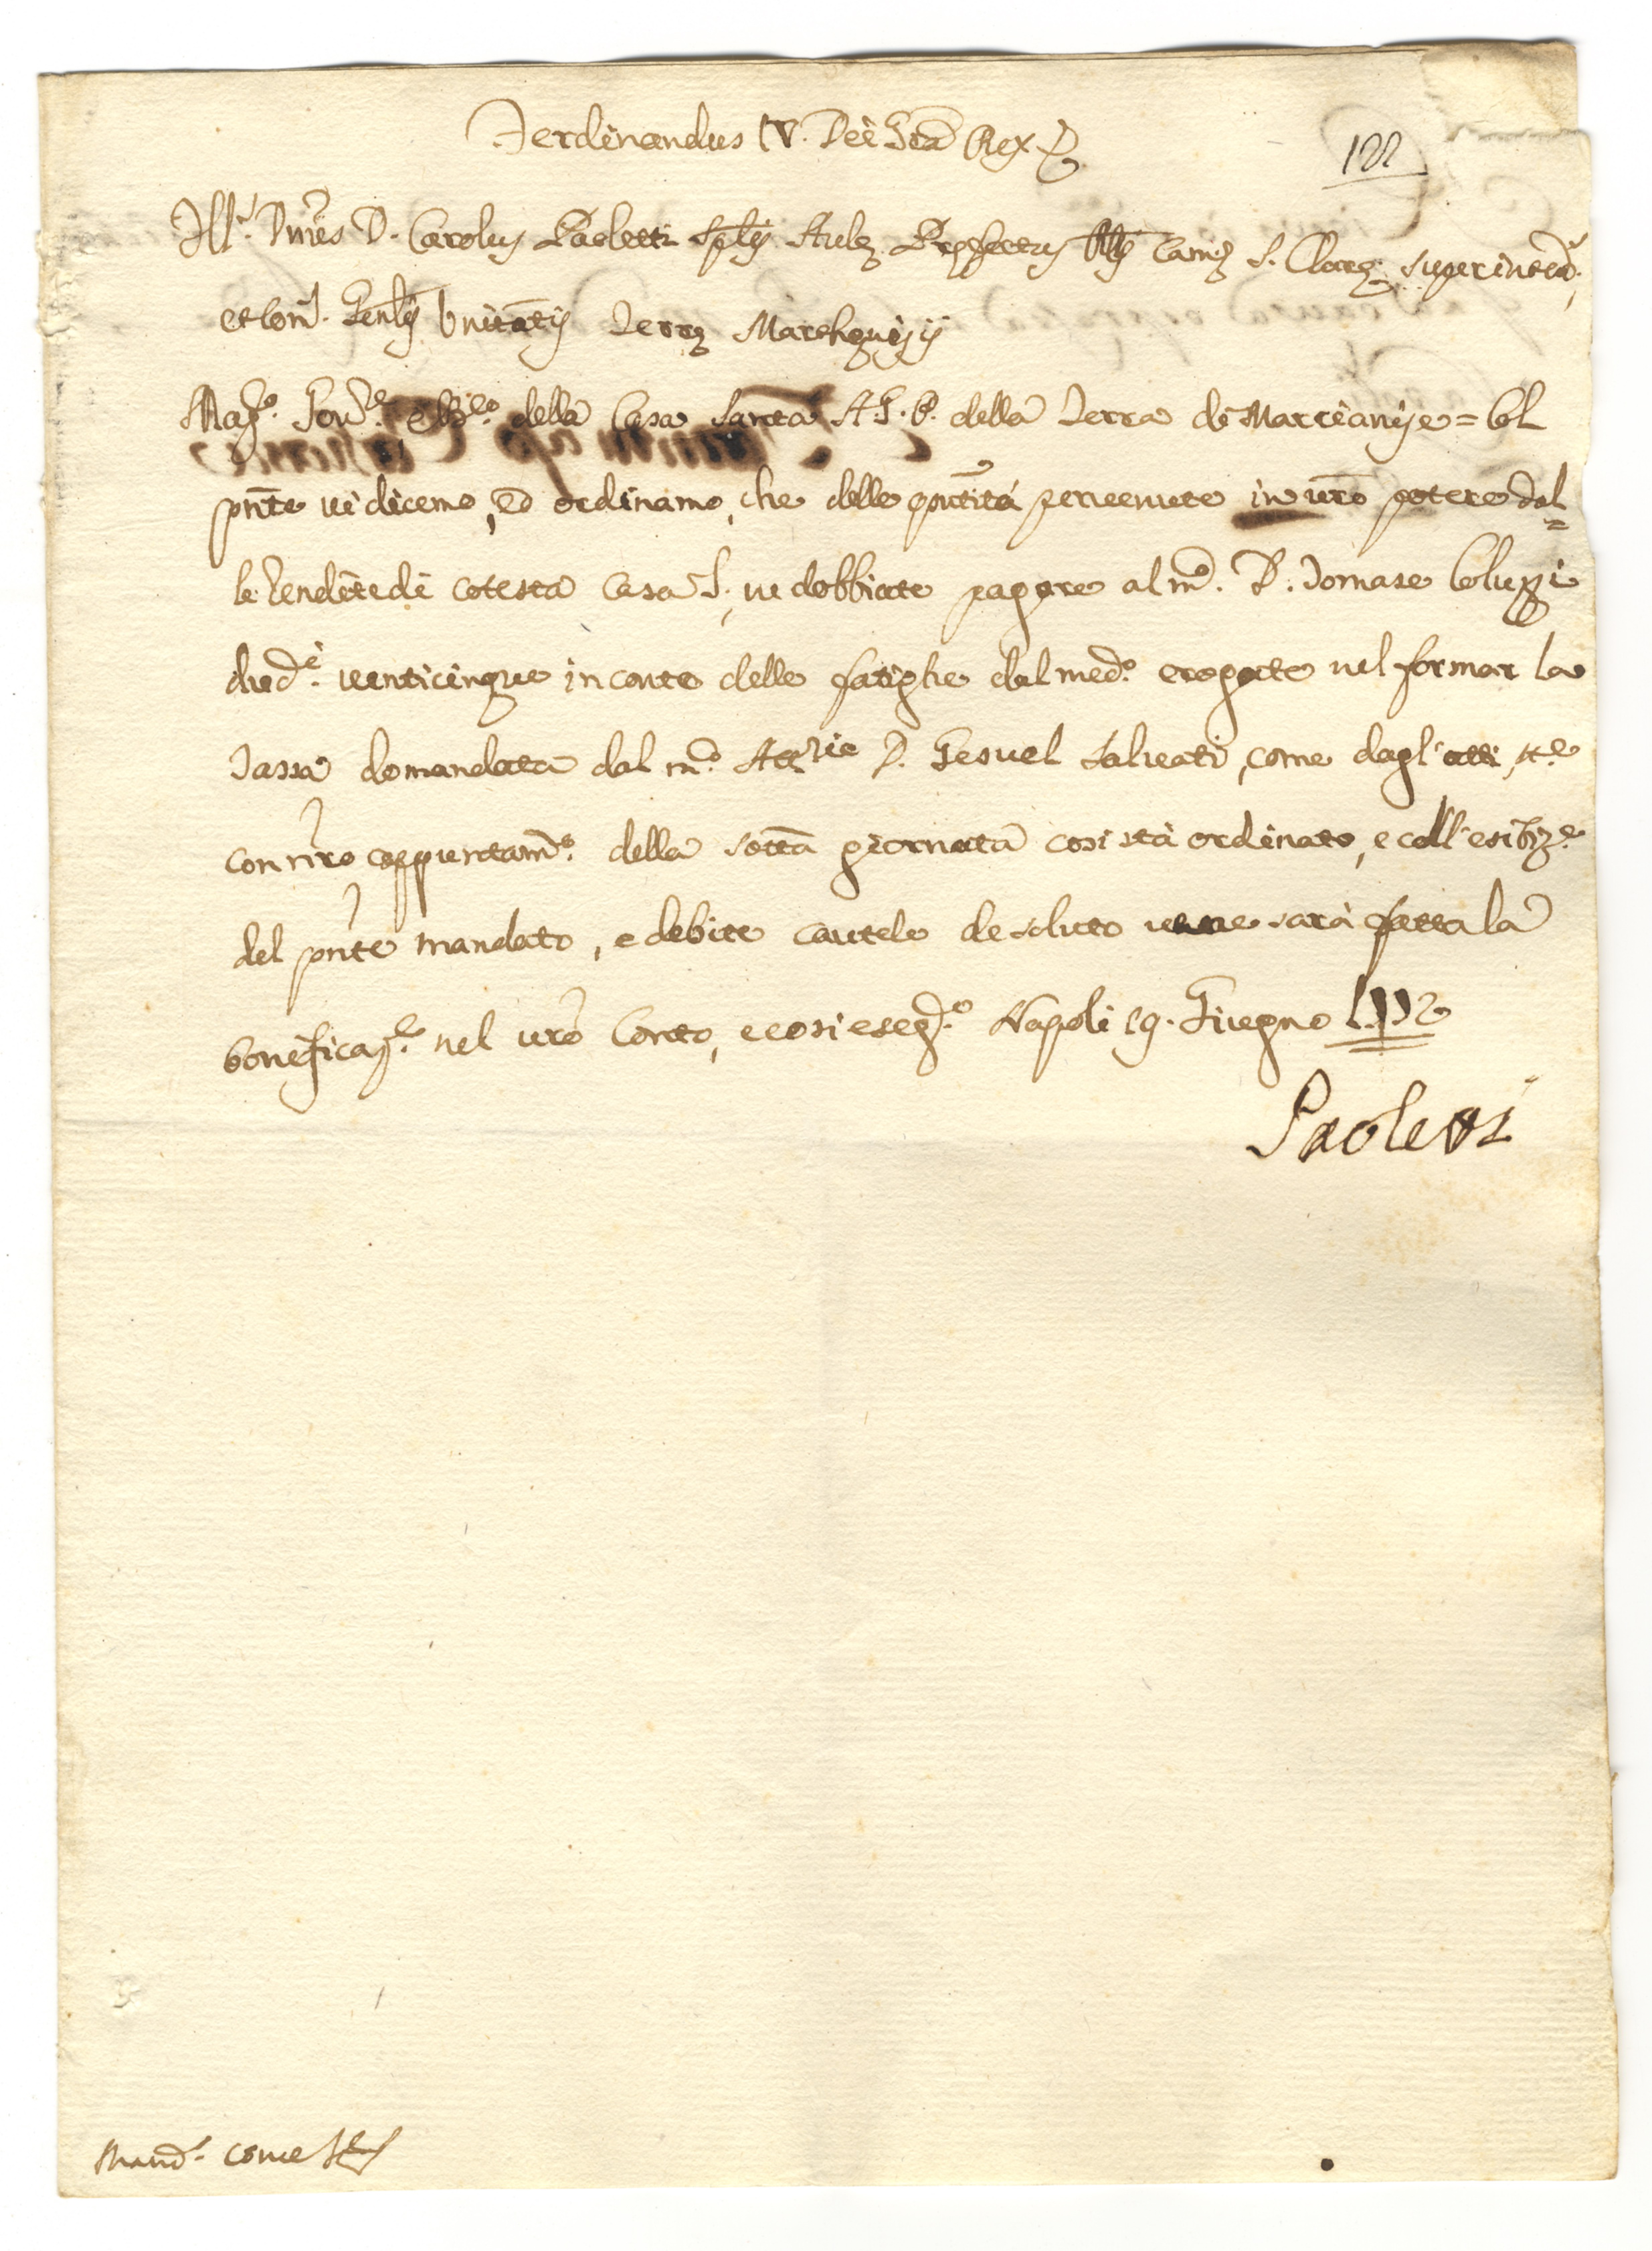 Ferdinandus IV. Dei Grã Rex &
122
Ill.s Dñus D. Carolus Paoletti Aulę Pręfectus Cam.ę S. Clarę superinten.
et Com. Gen.lis Unitatis Terrę Marchanisij
Mag.co Gov.re della Casa Santa A.G.P. della Terra di Marcianise = Col
pñte vi dicemo, ed ordinamo, che delle quãtità pervenute in vrõ potere dal=
le rendite di cotesta Casa S. ve dobbiate pagare al m.co D. Tomase Coluzzi
duc.ti venticinque in conto delle fatighe dal med.o erogate nel formar la
Tassa domandata dal m.co D. Gesuel Salveati, come dagl'atti,
con nrõ appuntam.to della sotta giornata così stà ordinato, e coll'esibiz.e
del pñte mandato, e debite cautele de soluto ve ne sarà fatta la
bonificaz.e nel vrõ Conto, e così eseg.o Napoli 19. Giugno 1772
Paoletti
Mand.o come